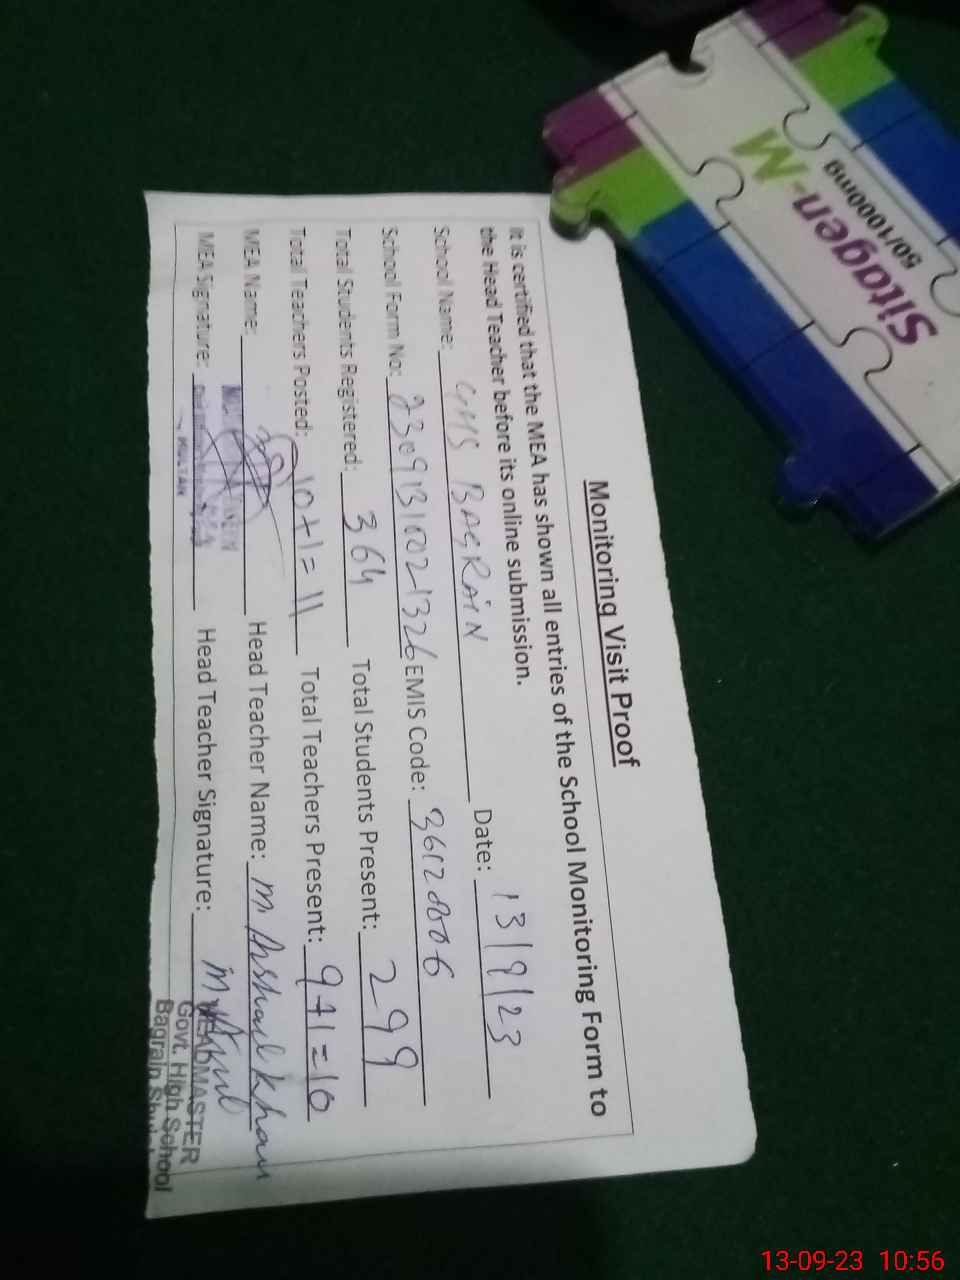 Monitoring Visit Proof
It is certified that the MEA has shown all entries of the School Monitoring Form to
the Head Teacher before its online submission.
School Name: GHS BAGRAIN Date: 13/9/23
School Form No: 23091310021326 EMIS Code: 36120006
Total Students Registered: 364 Total Students Present: 299
Total Teachers Posted: 10+1=11 Total Teachers Present: 9+1=10
MEA Name: Head Teacher Name: M. Arshad Khan
MEA Signature: Head Teacher Signature:
HEADMASTER
Govt. High School
Bagrain
Sitagen-M
50/1000mg
13-09-23 10:56